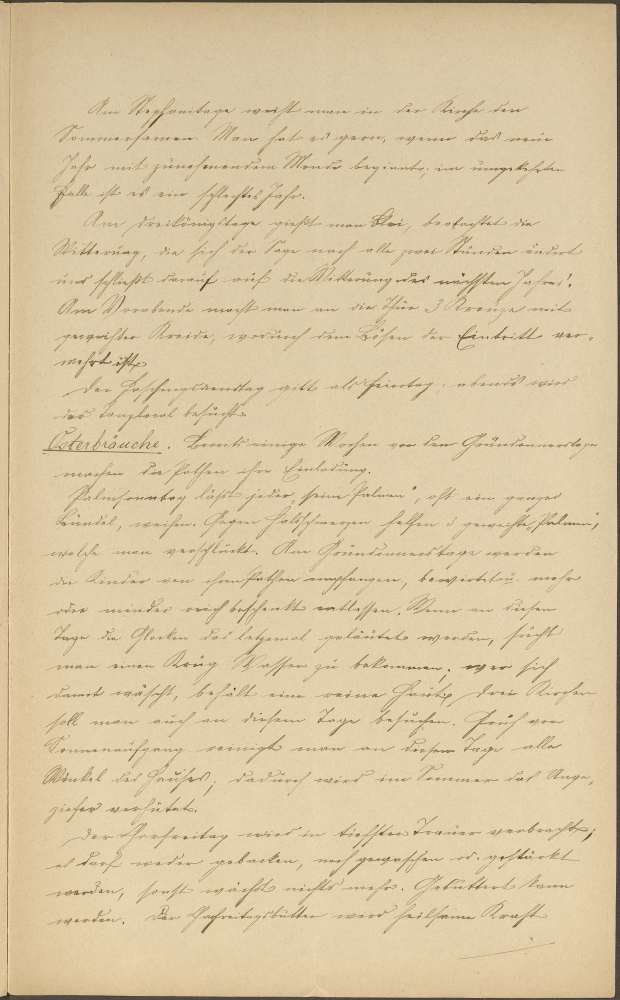 Am Stephanitage weiht man in der Kirche den
Sommersamen. Man hat es gern, wenn das neue
Jahr mit zunehmendem Monde beginnt; im umgekehrten
Falle ist es ein schlechtes Jahr.
Am Dreikönigstage gießt man Blei, beobachtet die
Witterung, die sich der Sage nach alle zwei Stunden ändert
und schließt darauf auf die Witterung des nächsten Jahres.
Am Vorabende macht man an die Thür 3 Kreuze mit
geweihter Kreide, wodurch dem Bösen der Eintritt ver-
wehrt ist.
Der Faschingsdienstag gilt als Feiertag; abends wird
das Tanzlocal besucht.
Osterbräuche. Bereits einige Wochen vor dem Gründonnerstage
machen die Pathen ihre Einladung.
Palmsonntag läßt jeder seine "Palmen", oft ein ganzes
Bündel, weihen. Gegen Halsschmerzen helfen 3 geweihte "Palmen",
welche man verschluckt. Am Gründonnerstage werden
die Kinder von ihren Pathen empfangen, bewirtet u. mehr
oder minder reich beschenkt entlassen. Wenn an diesem
Tage die Glocken das letztemal geläutet werden, sucht
man einen Krug Wasser zu bekommen; wer sich
damit wäscht, behält eine reine Haut. Drei Kirchen
soll man auch an diesem Tage besuchen. Früh vor
Sonnenaufgang reinigt man an diesem Tage alle
Winkel des Hauses; dadurch wird im Sommer das Unge-
ziefer verhütet.
Der Charfreitag wird in tiefster Trauer verbracht;
es darf weder gebacken, noch gewaschen od. gestärkt
werden, sonst wächst nichts mehr. Gebuttert kann
werden. Der Charfreitagsbutter wird heilsame Kraft